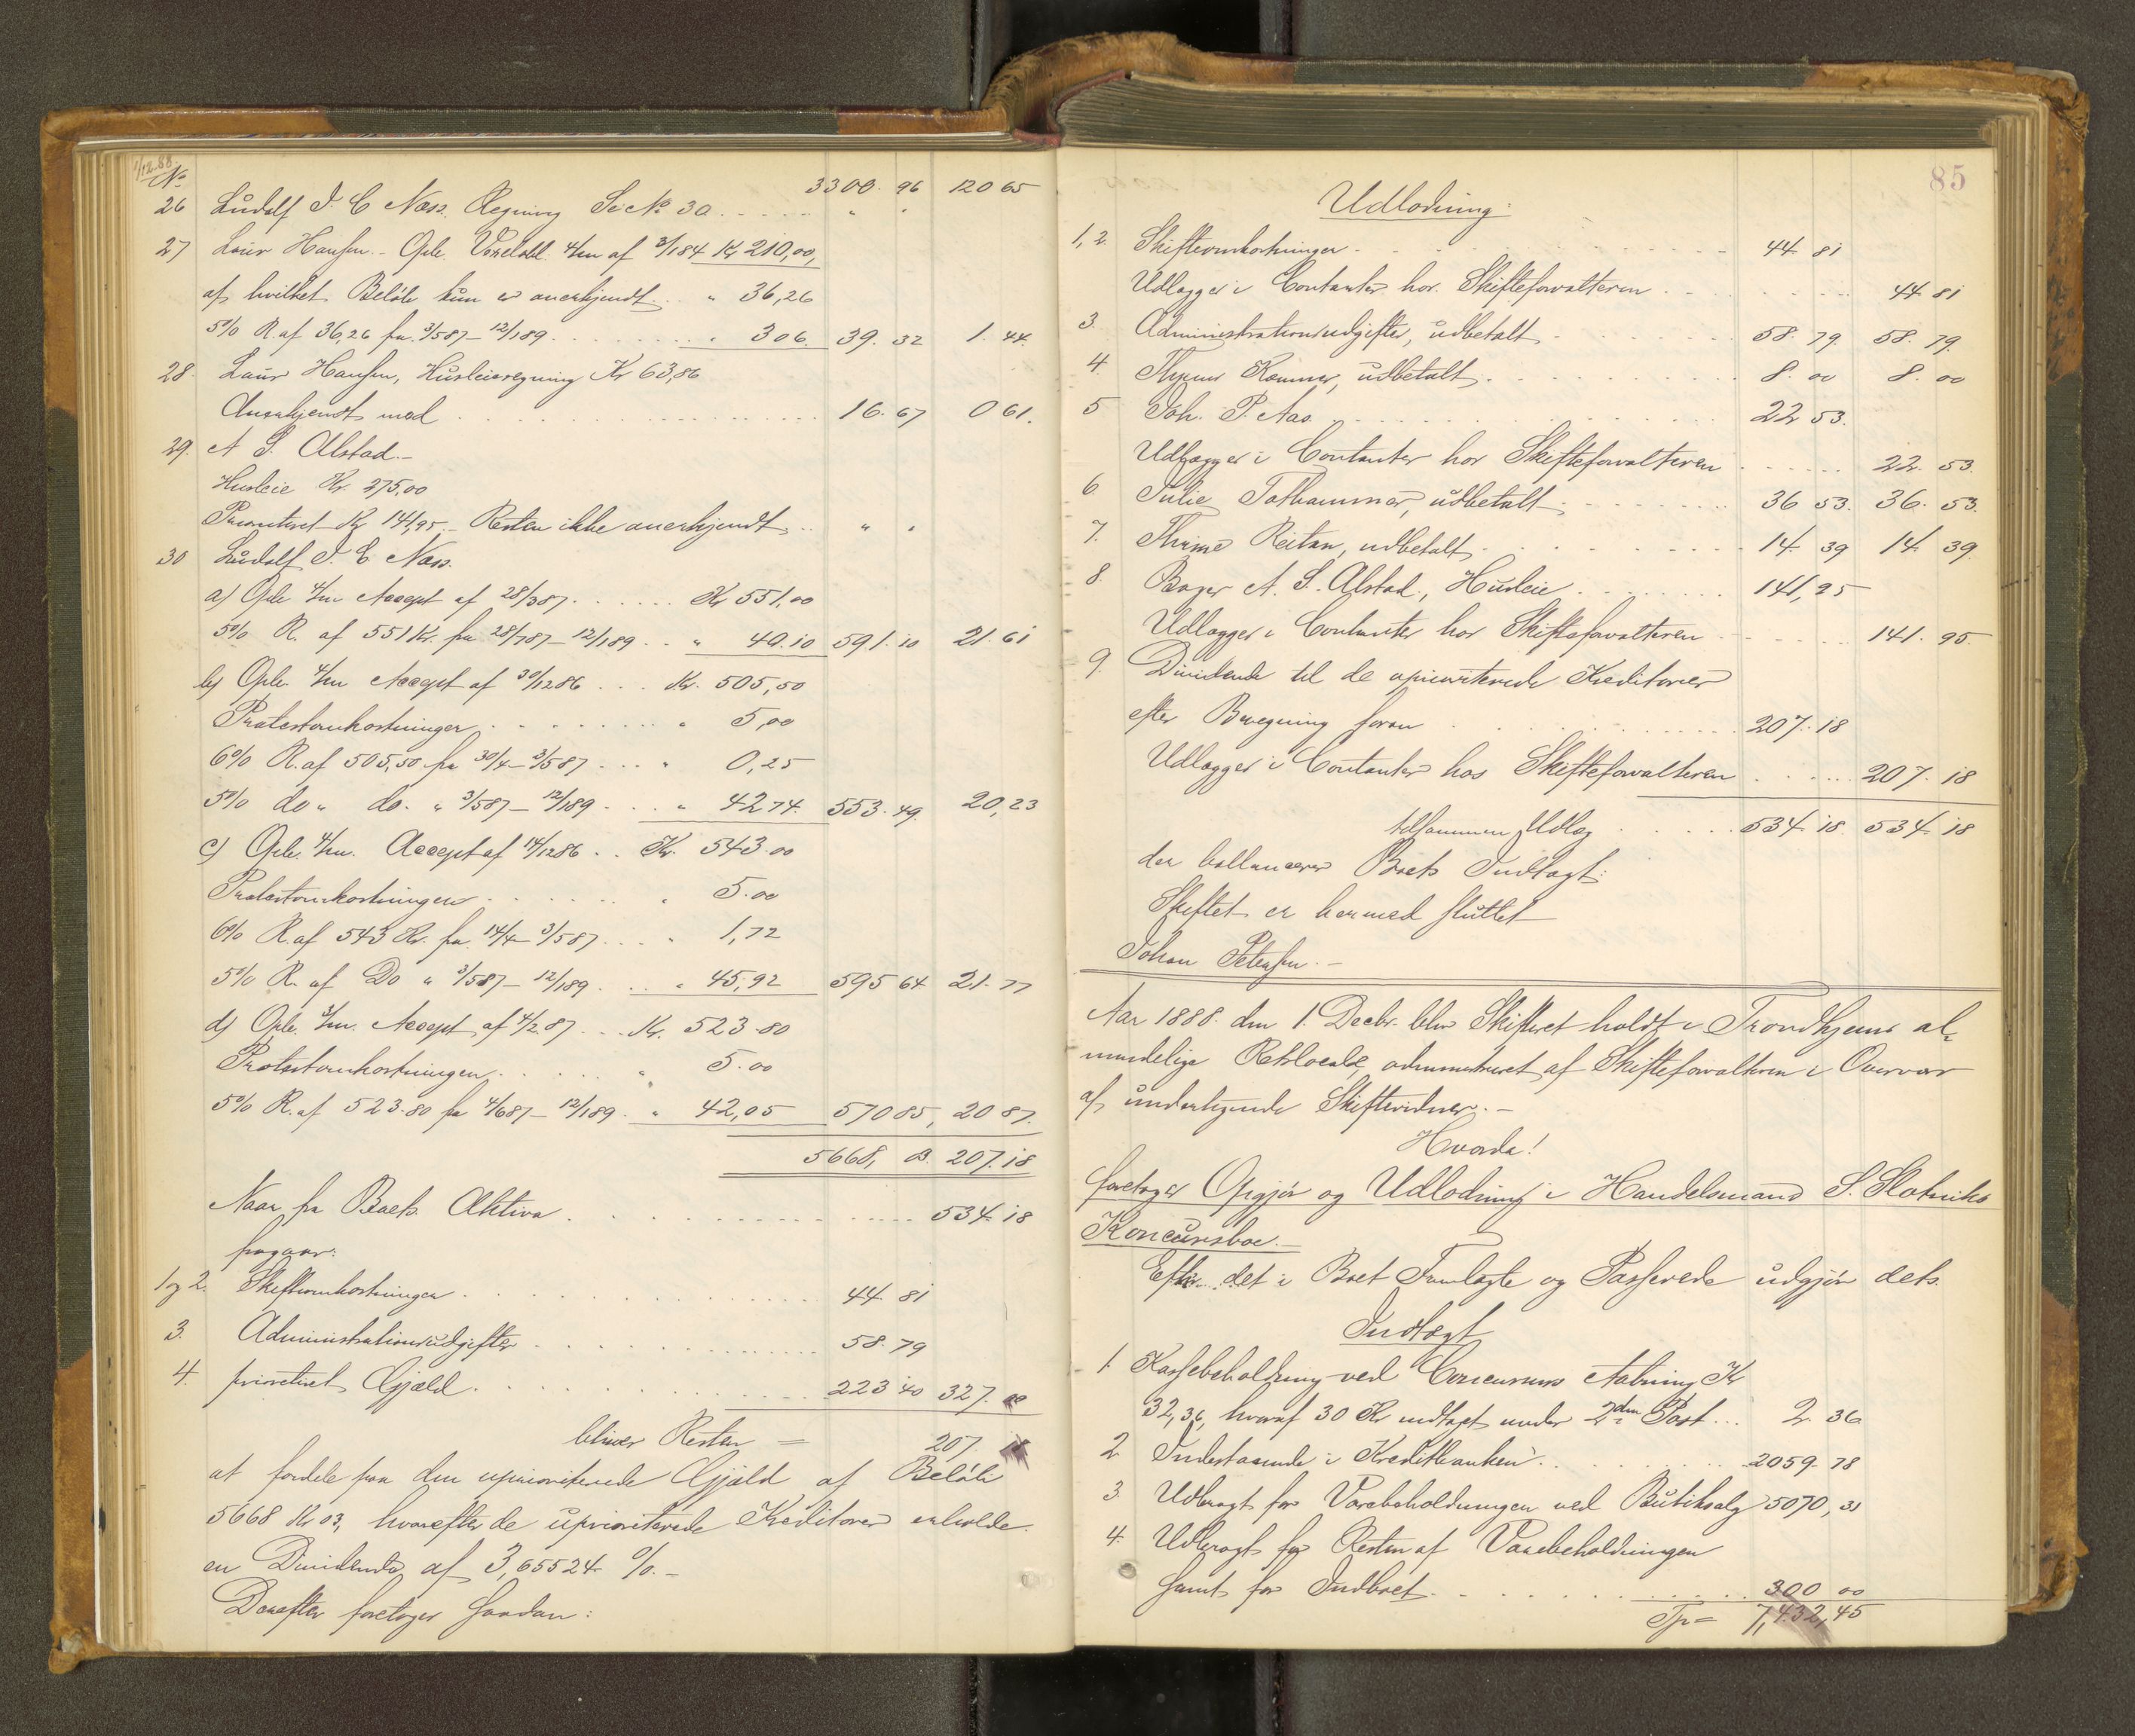 1/12.88.
No 3300. 96 120 65
26 Ludolf J. C Næss. Regning Se No 30 . . . . . " "
27 Laur Hansen - Opr. Vexelobl. 4/m af 3/184 Kr 210,00,
af hvilket Beløb kun er anerkjendt . . " 36,26
5% R. af 36,26 fra 3/587 - 12/189 . . . . . . . . " 306. 39. 32 1. 44.
28. Laur Hansen, Husleieregning Kr 63,86
Anerkjendt med . . . . . . . . . . . 16. 67 0 61.
29. A S. Alstad. -
Husleie Kr. 275,00
Prioriteret Kr 141,95. - Resten ikke anerkjendt . . " "
30 Ludolf J. C. Næss.
a) Opr. 4/m Accept af 28/387 . . . . . . Kr 551,00
5% R. af 551 Kr. fra 28/787 - 12/189 . . " 40.10 591. 10 21. 61
b) Opr. 4/m Accept af 30/1286 . . . Kr. 505,50
Protestomkostninger . . . . . . . . " 5,00
6% R. af 505,50 fra 30/4 - 3/587 . . . " 0,25
5% do " do. " 3/587 - 12/189 . . . " 42 74. 553. 49. 20,23
c) Opr. 4/m. Accept af 14/1286 . . Kr. 543.00
Protestomkostninger . . . . . . " 5.00
6% R. af 543 Kr. fra 14/4 - 3/587 . . . " 1,72
5% R. af Do " 3/587 - 12/189 . . . " 45,92 595 64. 21. 77
d) Opr. 4/m. Accept af 4/2.87 . . . Kr. 523.80
Protestomkostninger . . . . . " 5.00
5% R. af 523.80 fra 4/687 - 12/189 . " 42,05 570 85, 20 87.
5668, 03. 207. 18
Naar fra Boets Aktiva . . . . . . . . . . . 534. 18
fragaar:
1 og 2. Skifteomkostninger . . . . . . . . . . 44. 81
3. Administrationsudgifter . . . . . . . . . 58. 79
4. prioriteret Gjæld . . . . . . . . . . . 223 40 327. 00
bliver Resten = 207. 18
at fordele paa den uprioriterede Gjæld af Beløb
5668 Kr 03, hvorefter de uprioriterede Kreditorer erholde
en Dividende af 3,65524 %. -
Derefter foretoges saadan:
85
Udlodning:
1, 2. Skifteomkostninger . . . . . . . . . 44. 81
Udlægges i Contanter hos Skifteforvalteren . . . . . . 44 81
3. Administrationsudgifter, udbetalt . . . . . . . 58. 79. 58. 79.
4. Thjems Kæmner, udbetalt . . . . . . . . . 8. 00 8. 00
5 Joh. P. Aas . . . . . . . . . . . . . 22 53.
Udlægges i Contanter hos Skifteforvalteren . . . . . . 22. 53.
6. Julie Tothammer, udbetalt . . . . . . . . 36 53. 36. 53.
7. Thrine Reitan, udbetalt . . . . . . . . . . 14. 39 14. 39.
8. Bager A. S. Alstad, Husleie . . . . . . . . 141,95
Udlægges i Contanter hos Skifteforvalteren . . . . . . 141. 95.
9. Dividende til de uprioriterede Kreditorer
efter Beregning foran . . . . . . . . . . . 207. 18
Udlægges i Contanter hos Skifteforvalteren . . . . . 207. 18
tilsammen Udlæg . . . . . 534. 18. 534. 18
der ballancerer Boets Indtægt:
Skiftet er hermed sluttet
Johan Petersen. -
Aar 1888. den 1. Decbr. blev Skifteret holdt i Trondhjems al-
mindelige Retslocale, administreret af Skifteforvalteren i Overvær
af undertegnede Skiftevidner. -
Hvorda!
foretoges Opgjør og Udlodning i Handelsmand S. Slotniks
Koncursboe. -
Efter det i Boet Fremlagte og Passerede udgjør dets
Indtægt
1. Kassebeholdning ved Concursens Aabning Kr
32,36, hvoraf 30 Kr indtaget under 2den Post . . . 2. 36
2 Indestaaende i Kreditbanken . . . . . . . 2059. 78
3 Udbragt for Varebeholdningen ved Butiksalg 5070, 31
4. Udbragt for Resten af Varebeholdningen
samt for Indboet . . . . . . . . . . . 300 00
Tr = 7,432,45